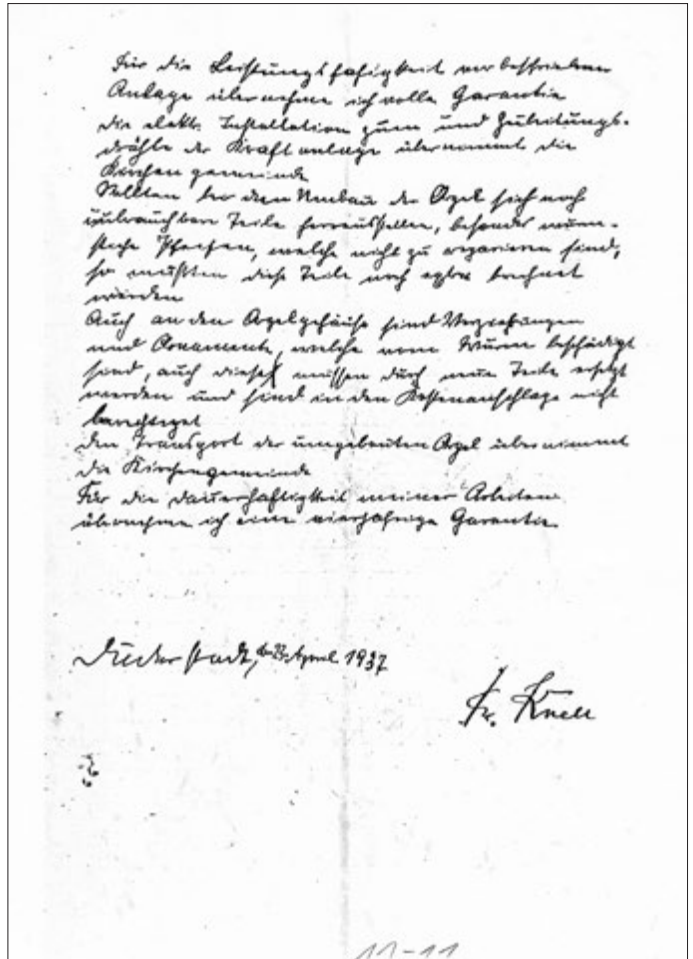 Für die Leistungsfähigkeit vor beschriebener
Anlage übernehme ich volle Garantie
die elektr. Installation zum und Zuleitungs-
drähte der Kraftanlage übernimmt die
Kirchengemeinde
Sollten bei dem Umbau der Orgel sich noch
unbrauchbare Teile herausstellen, besonders wurm-
stiche Pfeifen, welche nicht zu reparieren sind,
so müßten diese Teile noch extra berechnet
werden
Auch an den Orgelgehäuse sind Verziehungen
und Ornamente, welche vom Wurm beschädigt
sind, auch diese müssen durch neue Teile ersetzt
werden und sind in den Kostenanschlage nicht
den Transport der umgebauten Orgel übernimmt
die Kirchengemeinde
Für die dauerhaftigkeit meiner Arbeiten
übernehme ich eine vierjährige Garantie
Duderstadt, April 1937
Fr. Krell
11-11